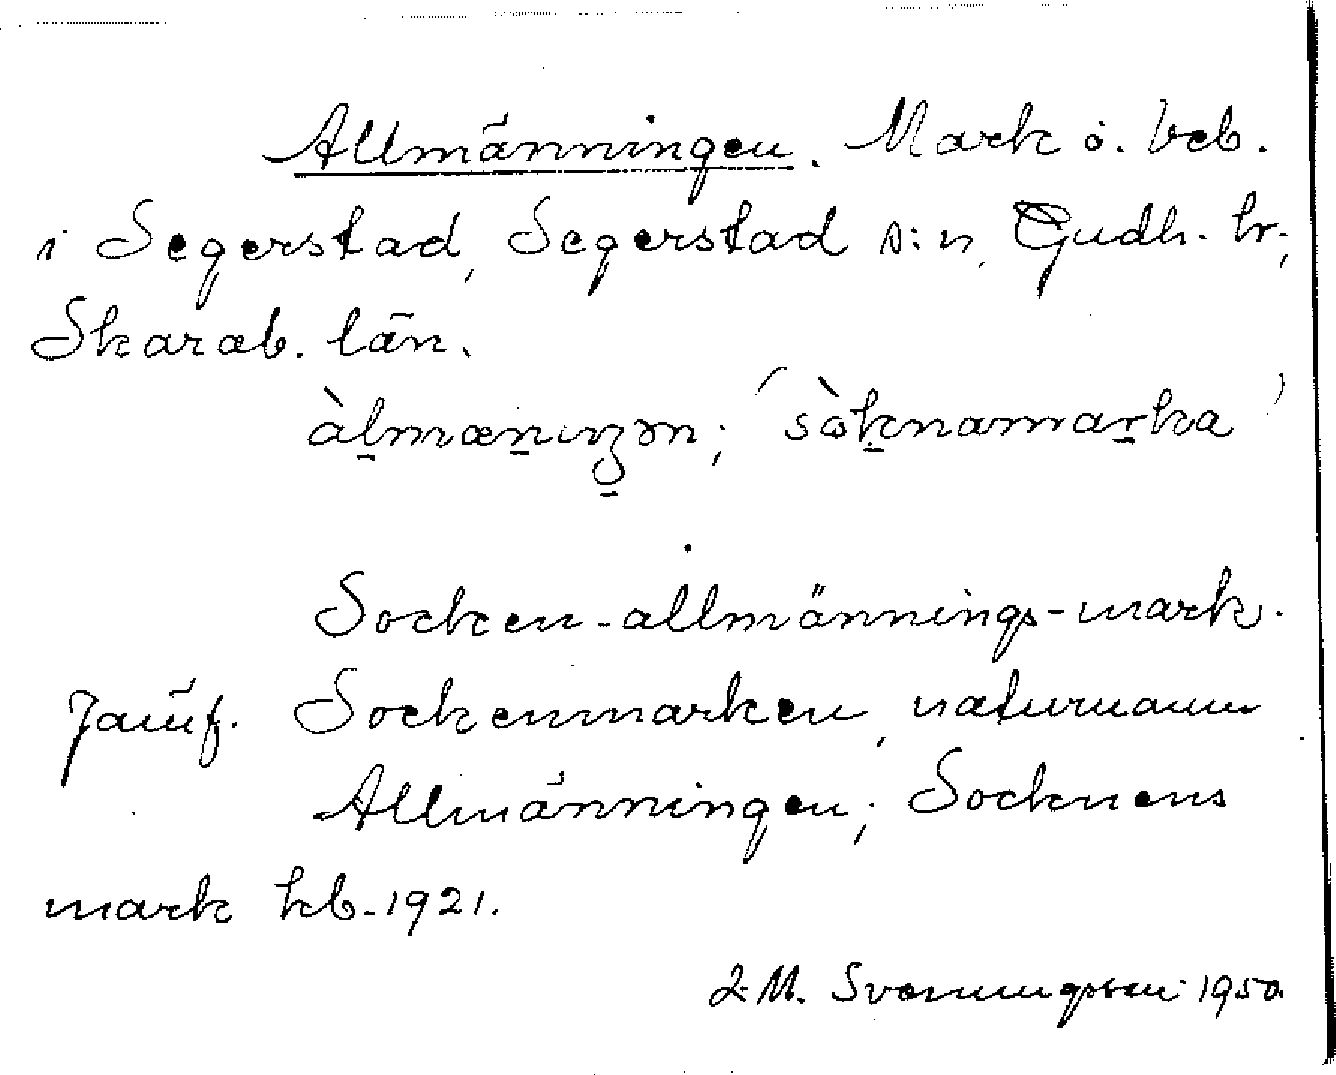 Allmänningen. Mark o. beb.
i Segerstad, Segerstad s:n, Gudh. hr,
Skarab. län.
àlmænıŋən; 'sòknamarka'
Socken-allmännings-mark.
Jämf. Sockenmarken, naturnamn
Allmänningen; Socknens
mark kb. 1921.
M. Svenungsson 1950.